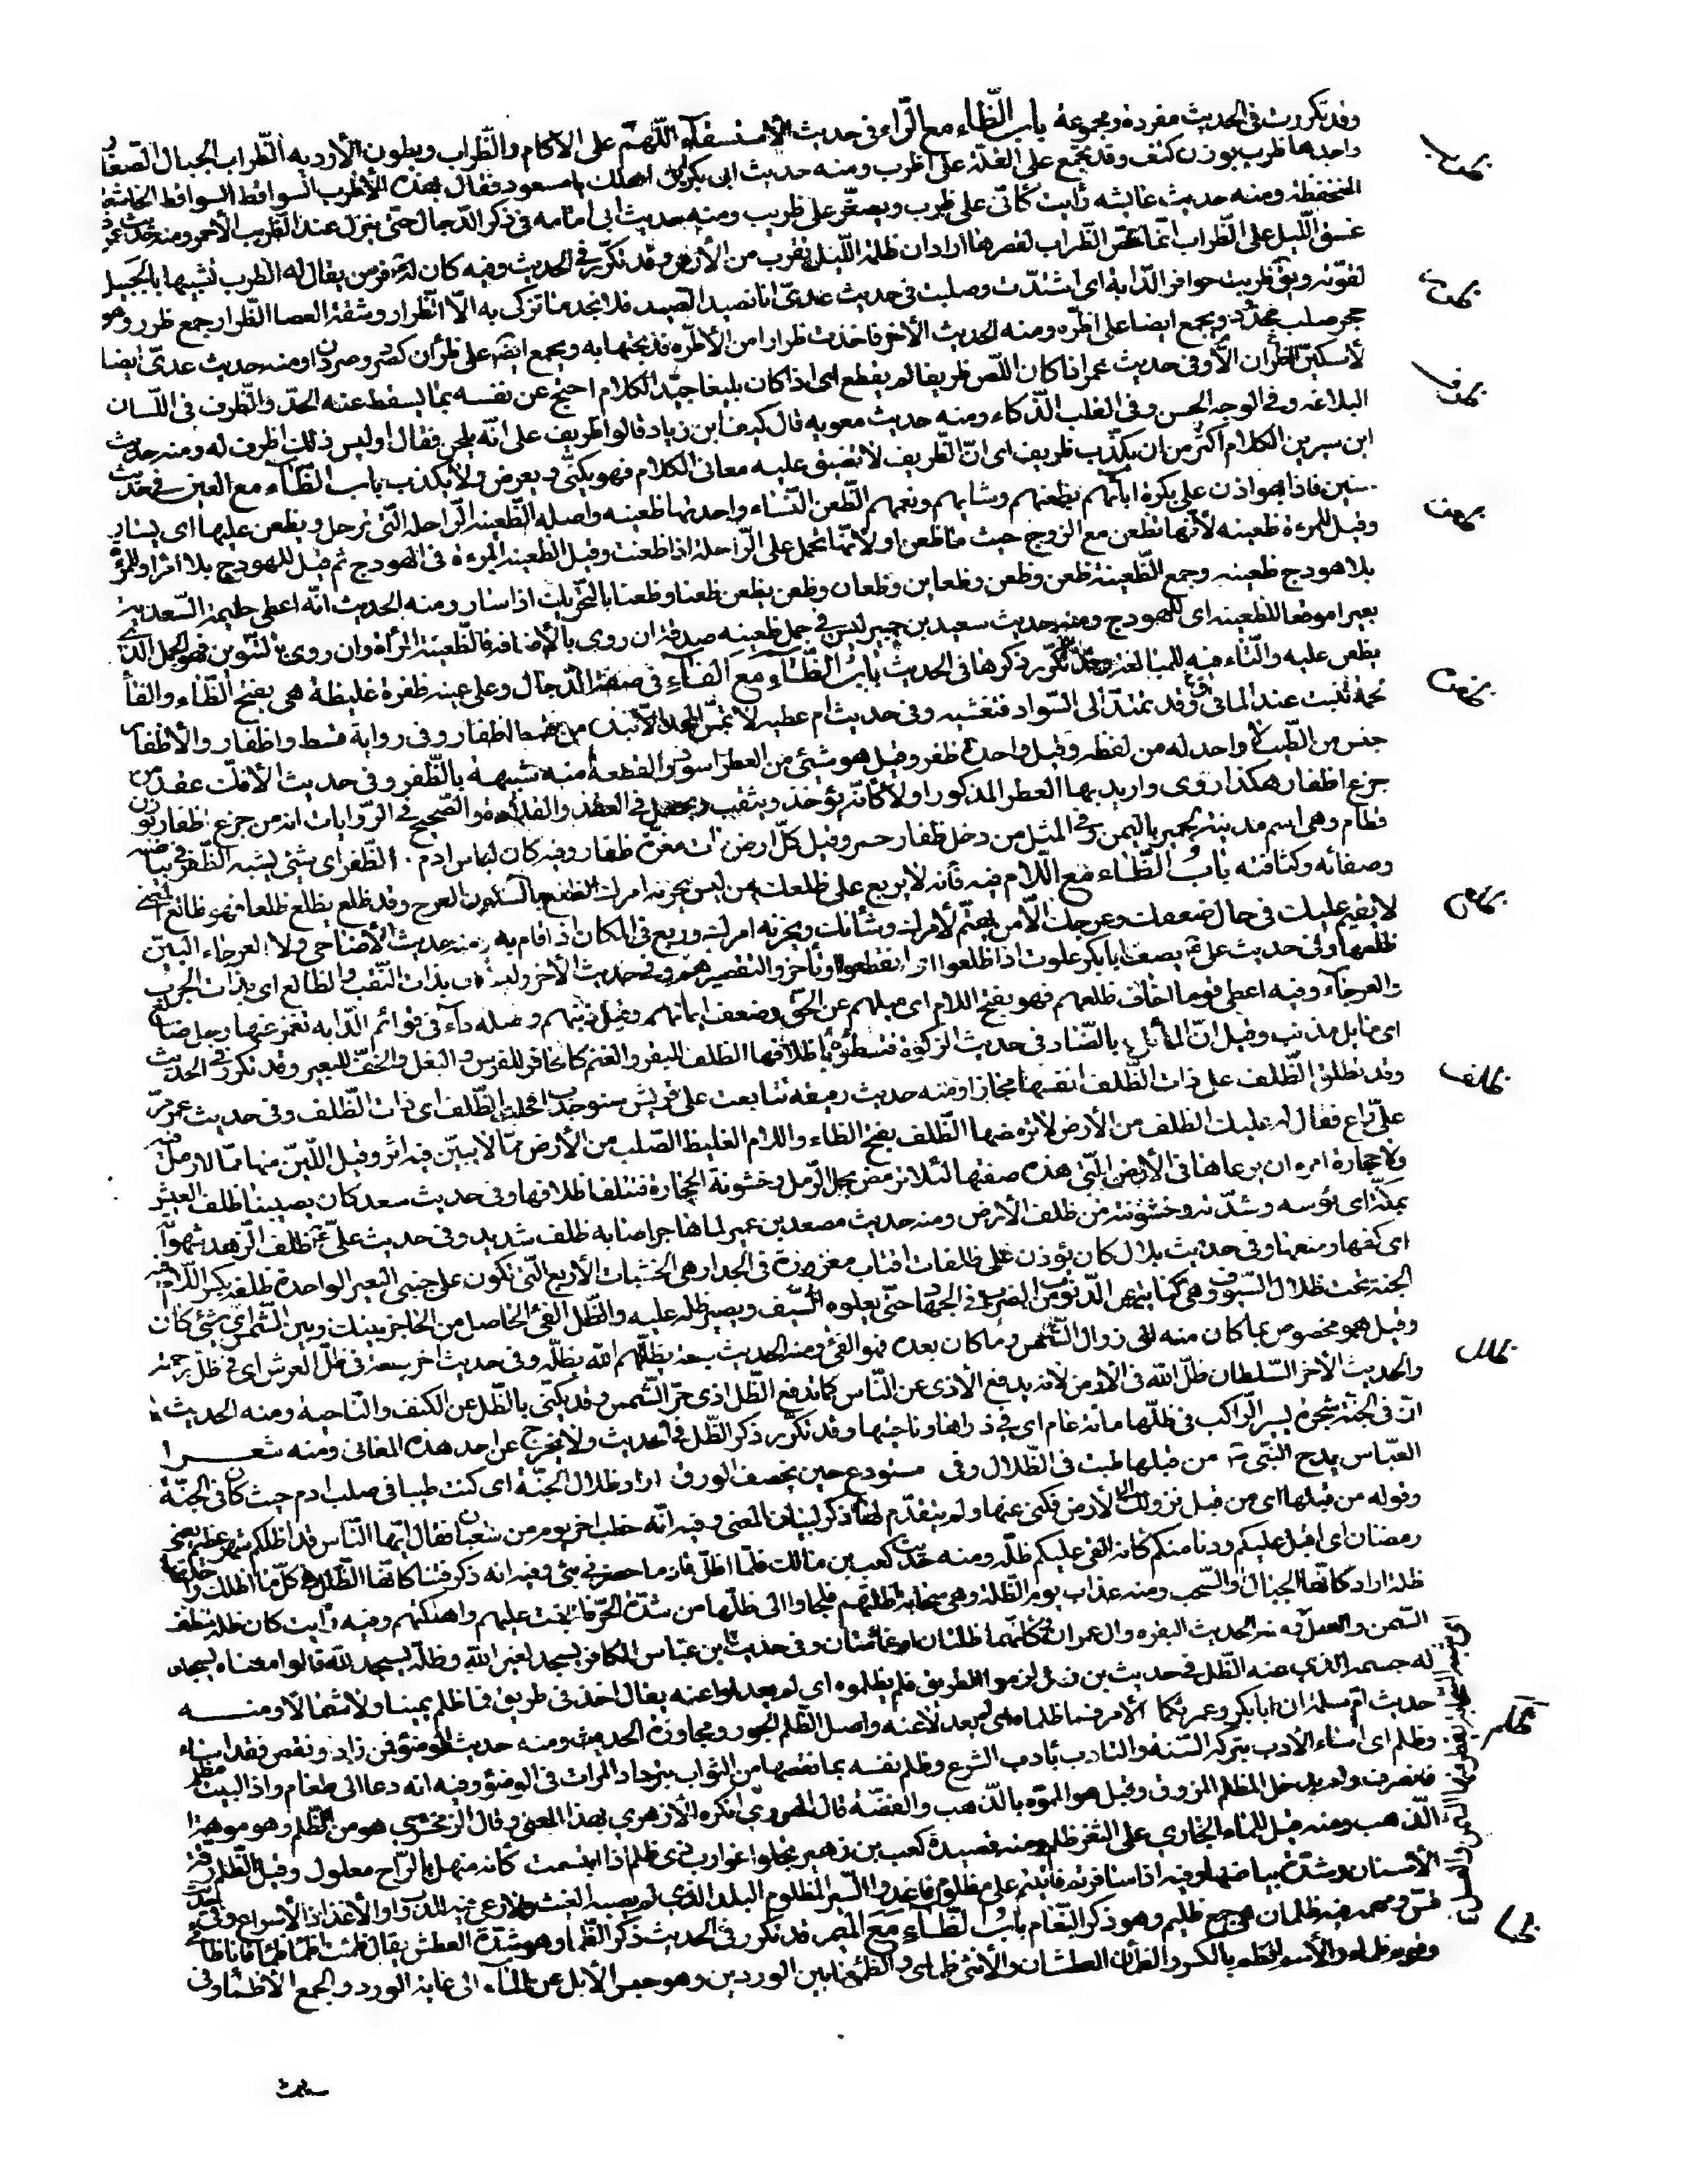 وقد تكررت فى الحديث مفردة ومجموعة باب الظّاء مع الرّاء فى حديث الأستسقاء اللّهمّ على الاكام والظّراب وبطون الأوديه الظّراب الجبال الصّغار
واحدها ظرب بوزن كتف وقد يجمع على القلّة على اظرب ومنه حديث ابى بكر اين اهلك يا مسعود فقال بهذه الأظرب السواقط السواقط الخاشعة
المنخفظة ومنه حديث عائشه رايت كانّى على ظرب ويصغّر على ظريب ومنه حديث ابى امامه فى ذكر الدّجال حتّى ينزل عند الظّريب الأحمر ومنه حديث عمر
غسق اللّيل على الظّراب انّما خصّ الظّراب لقصرها اراد ان ظلمة اللّيل تقرب من الأرض وقد تكرّر فى الحديث وفيه كان له فرس يقال له الظرب تشبيها بالجبيل
لقوّته ويق ظربت حوافر الدّابة اى اشتدّت وصلبت فى حديث عدىّ انا نصيد الصيد فلا نجد ما نزكى به الّا الظّرار وشقة العصا الظّرار جمع ظرر وهو
حجر صلب محدّد ويجمع ايضا على اظرّه ومنه الحديث الأخر فاخذت ظرارا من الأظرّه فذبحتها به ويجمع ايضا على ظرّان كصرد وصردان ومنه حديث عدىّ ايضا
لأسكّين الّا الظرّان وفى حديث عمر اذا كان اللّص ظريفا لم يقطع اى اذا كان بليغا جيّد الكلام احتج عن نفسه بما يسقط عنه الحدّ والظّرف فى اللّسان
البلاغه وفى الوجه الحسن وفى القلب الذّكاء ومنه حديث معويه قال كيف ابن زياد قالوا ظريف على انّه يلحن فقال اوليس ذلك اظرف له ومنه حديث
ابن سيرين الكلام اكثر من ان يكذّب ظريف اى انّ الظّريف لا تضيق عليه معانى الكلام فهو يكنّى ويعرض ولا يكذب باب الظّاء مع العين فى حديث
حنين فاذا بهوازن على بكرة ابائهم بظعنهم وشايهم ونعمهم الظّعن النّساء واحدتها ظعينه واصله الظّعينة الرّاحله الّتى يرحل ويظعن عليها اى يسار
وقيل للمرءة ظعينه لأنّها تظعن مع الزوج حيث ما ظعن او لأنّها تحمل على الرّاحلة اذا ظعنت وقيل الظعينة المرءة فى الهودج ثم قيل للهودج بلا امراة وللمرءة
بلا هودج ظعينه وجمع الظّعينة ظعن وظعن وظعاين وظعان وظعن يظعن ظعنا وظعنا بالتّحريك اذا سار ومنه الحديث انّه اعطى حليمة السّعديه
بعيرا موضعا للظعينه اى للهودج ومنه حديث سعيد بن جبير ليس فى جمل ظعينه صدقة ان روى بالأضافه فالظّعينة المرأة وان روى بالتّنوين فهو الجمل الذّى
يظعن عليه والتّاء فيه للمبالغة وقد تكّرر ذكرها فى الحديث بابُ الظّاءِ مَعَ الفآءِ فى صفة الدّجال وعلى عينه ظفرة غليظة هى بفتح الظّاء والفاء
لحمة تنبت عند الماقى وقد تمتدّ الى السّواد فتغشيه وفى حديث ام عطيه لا تمسّ المحد الا نبذة من قسط اظفار وفى رواية قسط واظفار والأظفار
جنس من الطّيب لا واحد له من لفظه وقيل واحده ظفر وقيل هو شيئى من العطر اسود والقطعة منه شبيهة بالظّفر وفى حديث الأفك عقد من
جزع اظفار هكذا روى واريد بها العطر المذكور اولا كانّه يؤخذ ويثقب ويجعل فى العقد والقلادة والصّحيح فى الرّوايات انه من جزع ظفار بوزن
قطام وهى اسم مدينة لحمير باليمن وفى المثل من دخل ظفار حمر وقيل كلّ ارض ذات مغرة ظفار وفيه كان لباس ادم الظّفر اى شيئ يشبه الظّفر فى بياضه
وصفائه وكثافته بابُ الظّاء مع اللّام فيه فأنه لا يربع على ظلعك من ليس يحزنه امرك الظلع بالسّكون العرج وقد ظلع يظلع ظلعا فهو ظالع المعنى
لا يقيم عليك فى حال ضعفك وعرجك الّا من يهتمّ لأمرك وشأنك ويحزنه امرك وربع فى المكان اذا قام به ومنه حديث الأضاحى ولا العرجاء البيّن
ظلعها وفى حديث علىّ يصف ابابكر علوت اذا ظلعوا اى انقطعوا وتأخّروا لتقصيرهم وفى حديث الأخر وليستأن بذات النّقب والظالع اى بذات الجرب
والعرجآء وفيه اعطى قوما اخاف ظلعهم فهو بفتح اللام اى ميلهم عن الحقّ وضعف ايمانهم وقيل ذنبهم واصله داء فى قوائم الدّابه تغمز عنها ورجل ضالع
اى مايل مذنب وقيل انّ المائل بالضّاد فى حديث الزكوة فتطؤه باظلافها الظلف للبقر والغنم كالحافر للفرس والبغل والخفّ للبعير وقد تكرر فى الحديث
وقد تطلق الظّلف على ذات الظّلف انفسها مجازا ومنه حديث رقيقة تتابعت على قريش سنو جدب اقحلت الظّلف اى ذات الظّلف وفى حديث عمر مرّ
على راع فقال له عليك الظلف من الأرض لا ترمضها الظّلف بفتح الظاء واللام الغليظ الصّلب من الأرض ممّا لا يبيّن فيه اثر وقيل اللّيّن منها ممّا لا رمل فيه
ولا حجارة امره ان يرعاها فى الأرض الّتى هذه صفتها لئلا ترمض بحرّ الرّمل وخشونة الحجارة فتتلف اظلافها وفى حديث سعد كان يصيبنا ظلف العيش
بمكّة اى بؤسه وشدّته وخشونته من ظلف الأرض ومنه حديث مصعد بن عمير لما هاجر اصابه ظلف شديد وفى حديث علىّ ظلف الزّهد شهواته
اى كفها ومنعها وفى حديث بلال كان يؤذن على ظلفات اقتاب مغرزة فى الجدار هى الخشبات الأربع الّتى تكون على جنبى البعير الواحدة ظلفة بكسر اللّام فيه
الجنة تحت ظلال السّيوف وهى كناية عن الدّنو من الضرب فى الجهاد حتّى يعلوه السّيف ويصير ظله عليه والظّل الفئ الحاصل من الحاجز بينك وبين الشّمس اى شئ كان
وقيل هو مخصوص بما كان منه الى زوال الشّمس وما كان بعده فهو الفئ ومنه الحديث سبعة يظلّهم الله بظلّه وفى حديث اخر سبعة فى ظلّ العرش اى فى ظلّ رحمته
والحديث الأخر السّلطان ظلّ الله فى الأرض لأنه يدفع الأذى عن النّاس كما يدفع الظّل اذى حرّ الشّمس وقد يكنّى بالظّل عن الكنف والنّاحية ومنه الحديث
انّ فى الجنّة شجرة يسير الرّاكب فى ظلّها مائة عام اى فى ذراها وناحيتها وقد تكرّر ذكر الظّل فى الحديث ولا يخرج عن احد هذه المعانى ومنه شعرا
العبّاس يمدح النّبى من قبلها طبت فى الظّلال وفى مستودع حين يخصف الورق اراد ظلال الجنّة اى كنت طيبا فى صلب ادم حيث كان فى الجنّة
وقوله من قبلها اى من قبل نزولك الى الأرض فكنى عنها ولم يتقدّم لها ذكر لبيان المعنى وفيه انّه خطب اخر يوم من شعبان فقال ايّها النّاس قد اظلكم شهر عظيم يعنى
رمضان اى اقبل عليكم ودنا منكم كانه القى عليكم ظلّه ومنه حديث كعب بن مالك فلمّا اظلّ قادما حضرنى بثى وفيه انه ذكر فتنا كانّها الظّلل هى كلّ ما اظلك واحدتها
ظلة اراد كانّها الجبال والسّحب ومنه عذاب يوم الظّلة وهى سحابة اظلّتهم فلجاوا الى ظلّها من شدّة الحرّ فاطبقت عليهم واهلكتهم وفيه رأيت كان ظلة تنطف
السّمن والعسل ومنه الحديث البقره وال عمران كانّهما ظلتان او غمامتان وفى حديث ابن عبّاس الكافر يسجد لغير الله وظلّه يسجد لله قالوا معناه يسجد
له جسمه الذى عنه الظّل فى حديث بن زمل لزموا الطّريق فلم يظلموه اى لم يعدلوا عنه يقال اخذ فى طريق فما ظلم يمينا ولا شمالا ومنه
حديث امّ سلمة ان ابابكر وعمر ثكما الأمر فما ظلماه اى لم يعدلا عنه واصل الظّلم الجور ومجاوزة الحد ومنه حديث الوضوء فمن زاد ونقص فقد اساء
وظلم اى اساء الأدب بتركه السّنة والتادب بأدب الشرع وظلم نفسه بما نقصها من الثواب بترداد المرات فى الوضؤ وفيه انه دعا الى طعام واذا البيت مظلّم
فانصرف ولم يدخل المظلم المزوق وقيل هو المموّه بالذّهب والفضّة قال الهروىّ انكره الأزهرى بهذا المعنى وقال الزمخشرى هو من الظّلم وهو موهة
الذّهب ومنه قيل للماء الجارى على الثغر ظلم ومنه قصيدة كعب بن زهير تجلوا غوارب ذى ظلم اذا ابتسمت كأنه منهل بالرّاح معلول وقيل الظلم رقة
الأسنان وشدّة بياضها وفيه اذا سافرتم فاتيتم على مظلوم فاغذّوا السّير المظلوم البلد الذى لم يصبه الغيث ولا رعى فيه للدّواب والأغذاذ الأسراع وفى حديث
قسّ ومهمه فيه ظلمان هى جمع ظليم وهو ذكر النّعام بابُ الظّاءِ مَعَ الميم قد تكرر فى الحديث ذكر الظّماء وهو شدّة العطش يقال ظمئت اظمأ ظمأ فانا ظامئ
وقوم ظماء والأسم الظمء بالكسر والظمأن العطشان والأنثى ظماى والظمء ما بين الوردين وهو حبس الأبل عن الماء الى غاية الورد والجمع الأظماء وفى
ظرب
ظرر
ظرف
ظعن
ظفر
ظلع
ظلف
ظلل
ظلم
ظما